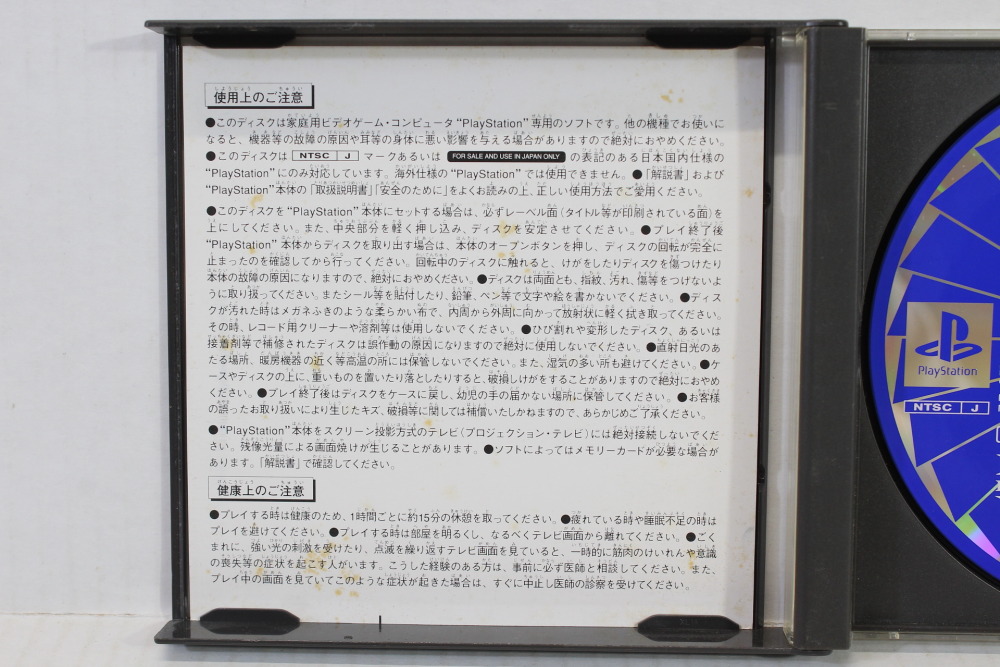 使用上のご注意
●このディスクは家庭用ビデオゲーム・コンピュータ“PlayStation”専用のソフトです。他の機種でお使いに
なると、機器等の故障の原因や耳等の身体に悪い影響を与える場合がありますので絶対におやめください。
●このディスクは NTSC J マークあるいは FOR SALE AND USE IN JAPAN ONLY の表記のある日本国内仕様の
“PlayStation”にのみ対応しています。海外仕様の“PlayStation”では使用できません。●「解説書」および
“PlayStation”本体の「取扱説明書」「安全のために」をよくお読みの上、正しい使用方法でご愛用ください。
●このディスクを“PlayStation”本体にセットする場合は、必ずレーベル面（タイトル等が印刷されている面）を
上にしてください。また、中央部分を軽く押し込み、ディスクを安定させてください。●プレイ終了後
“PlayStation”本体からディスクを取り出す場合は、本体のオープンボタンを押し、ディスクの回転が完全に
止まったのを確認してから行ってください。回転中のディスクに触れると、けがをしたりディスクを傷つけたり
本体の故障の原因になりますので、絶対におやめください。●ディスクは両面とも、指紋、汚れ、傷等をつけないよ
うに取り扱ってください。またシール等を貼付したり、鉛筆、ペン等で文字や絵を書かないでください。●ディス
クが汚れた時はメガネふきのような柔らかい布で、内周から外周に向かって放射状に軽く拭き取ってください。
その時、レコード用クリーナーや溶剤等は使用しないでください。●ひび割れや変形したディスク、あるいは
接着剤等で補修されたディスクは誤作動の原因になりますので絶対に使用しないでください。●直射日光のあ
たる場所、暖房機器の近く等高温の所には保管しないでください。また、湿気の多い所も避けてください。●ケ
ースやディスクの上に、重いものを置いたり落としたりすると、破損しけがをすることがありますので絶対におやめ
ください。●プレイ終了後はディスクをケースに戻し、幼児の手の届かない場所に保管してください。●お客様
の誤ったお取り扱いにより生じたキズ、破損等に関しては補償いたしかねますので、あらかじめご了承ください。
●“PlayStation”本体をスクリーン投影方式のテレビ（プロジェクション・テレビ）には絶対接続しないでくだ
さい。残像光量による画面焼けが生じることがあります。●ソフトによってはメモリーカードが必要な場合が
あります。「解説書」で確認してください。
健康上のご注意
●プレイする時は健康のため、1時間ごとに約15分の休憩を取ってください。●疲れている時や睡眠不足の時は
プレイを避けてください。●プレイする時は部屋を明るくし、なるべくテレビ画面から離れてください。●ごく
まれに、強い光の刺激を受けたり、点滅を繰り返すテレビ画面を見ていると、一時的に筋肉のけいれんや意識
の喪失等の症状を起こす人がいます。こうした経験のある方は、事前に必ず医師と相談してください。また、
プレイ中の画面を見ていてこのような症状が起きた場合は、すぐに中止し医師の診察を受けてください。
PlayStation
NTSC J